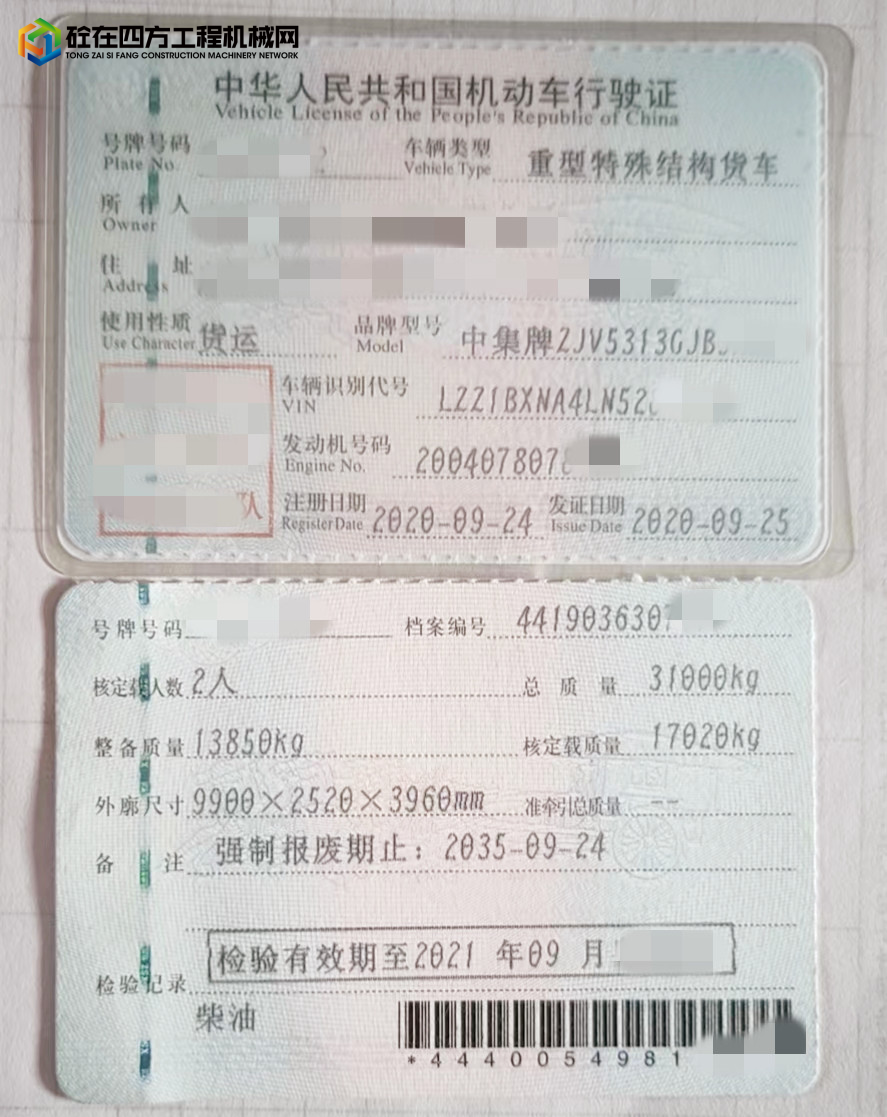 砼在四方工程机械网
TONG ZAI SI FANG CONSTRUCTION MACHINERY NETWORK
中华人民共和国机动车行驶证
Vehicle License of the People's Republic of China
号牌号码 车辆类型 重型特殊结构货车
Plate No. Vehicle Type
所有人
Owner
住址
Address
使用性质 货运 品牌型号 中集牌ZJV5313GJB
Use Character Model
车辆识别代号 LZZ1BXNA4LN52
VIN
发动机号码 200407807
Engine No.
队
注册日期 2020-09-24 发证日期 2020-09-25
Register Date Issue Date
号牌号码 档案编号 441903630
核定载人数 2人 总质量 31000kg
整备质量 13850kg 核定载质量 17020kg
外廓尺寸 9900×2520×3960mm 准牵引总质量 --
备注 强制报废期止：2035-09-24
检验有效期至2021 年09 月
检验记录
柴油
*4440054981